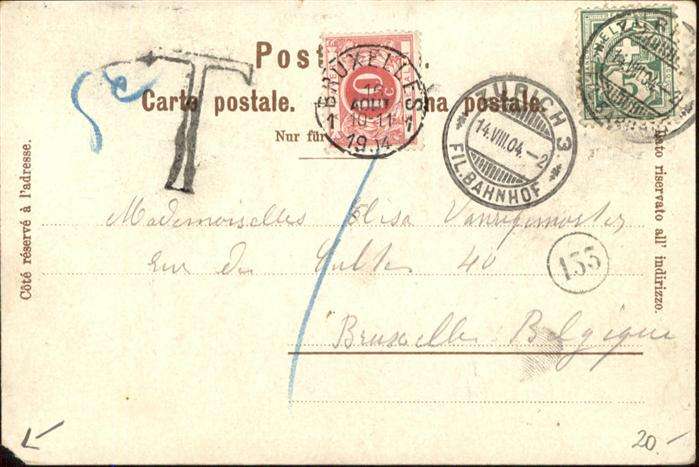 Post
Carte postale. na postale.
Nur für
Côté réservé à l'adresse.
Lato riservato all' indirizzo.
T
BRUXELLES
16
AOUT
1 10-11 1
1904
10
ZÜRICH 3
14.VIII.04.-2
FIL.BAHNHOF
5
133
Mademoiselles Elisa
Rue des Cultes 40
Bruxelles Belgique
20-